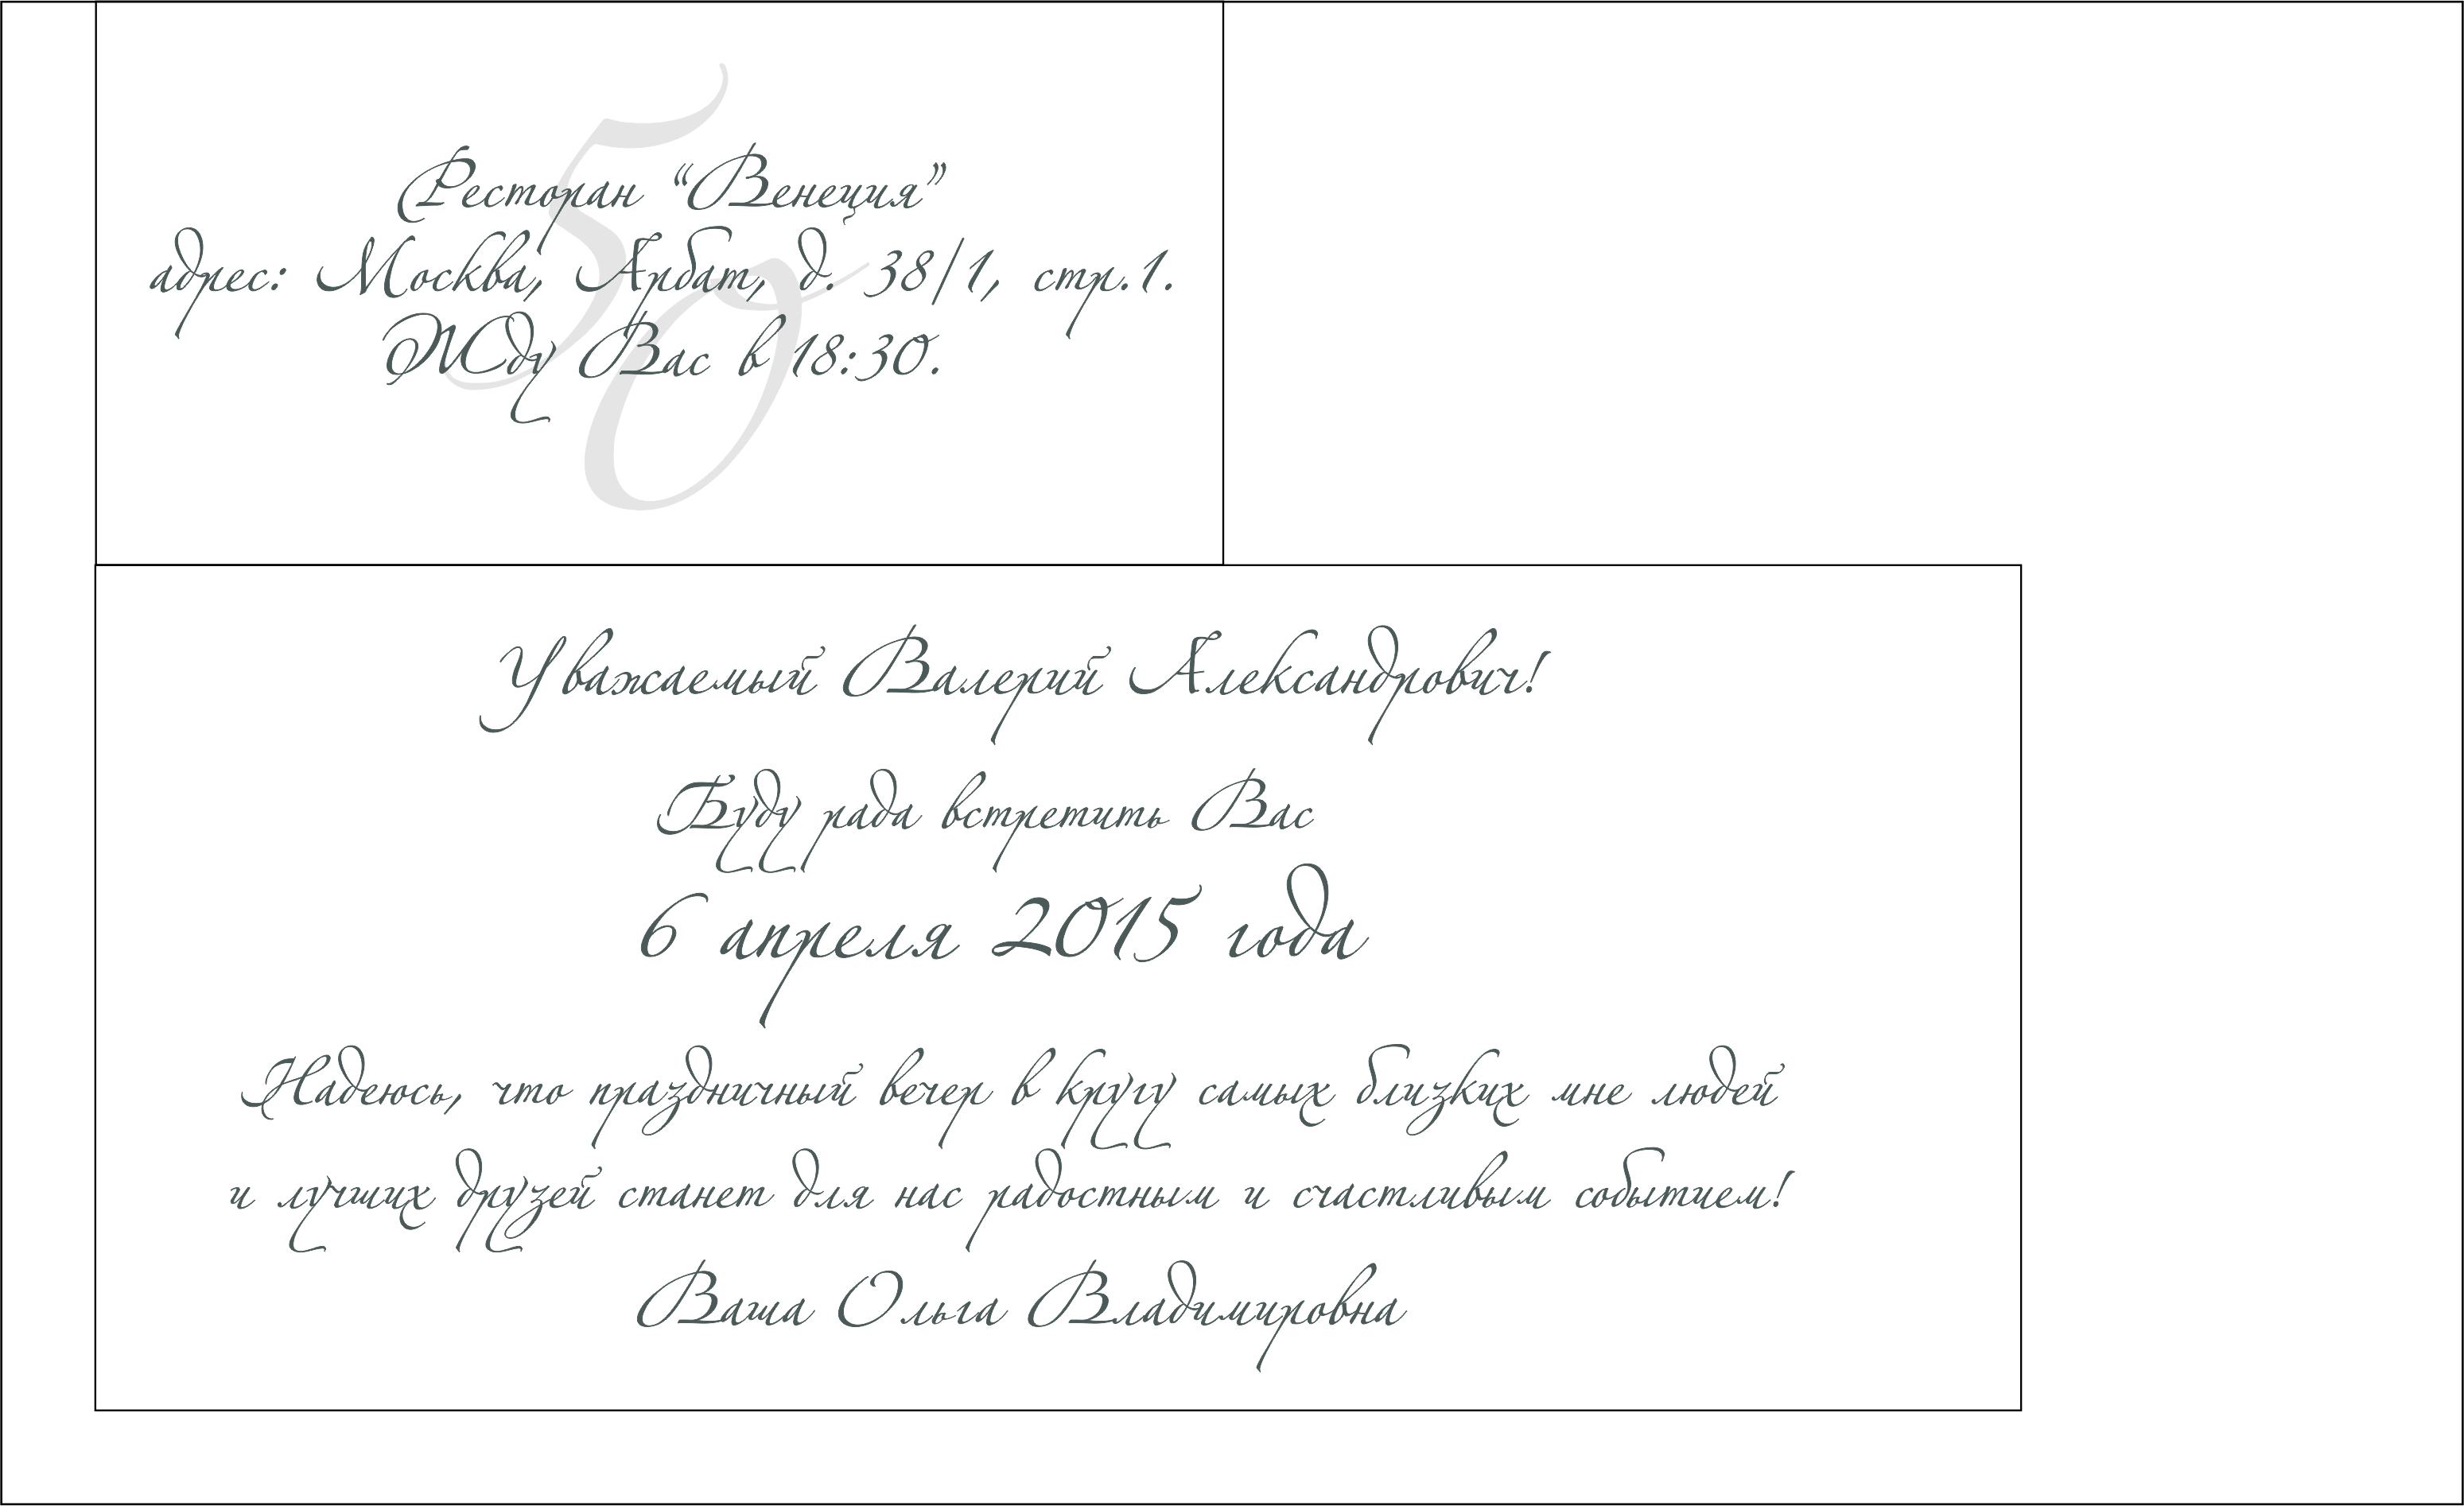 50
Ресторан “Венеция”
адрес: Москва, Арбат, д. 38/1, стр.1.
Жду Вас в 18:30.
Уважаемый Валерий Александрович!
Буду рада встретить Вас
6 апреля 2015 года
Надеюсь, что праздничный вечер в кругу самых близких мне людей
и лучших друзей станет для нас радостным и счастливым событием!
Ваша Ольга Владимировна